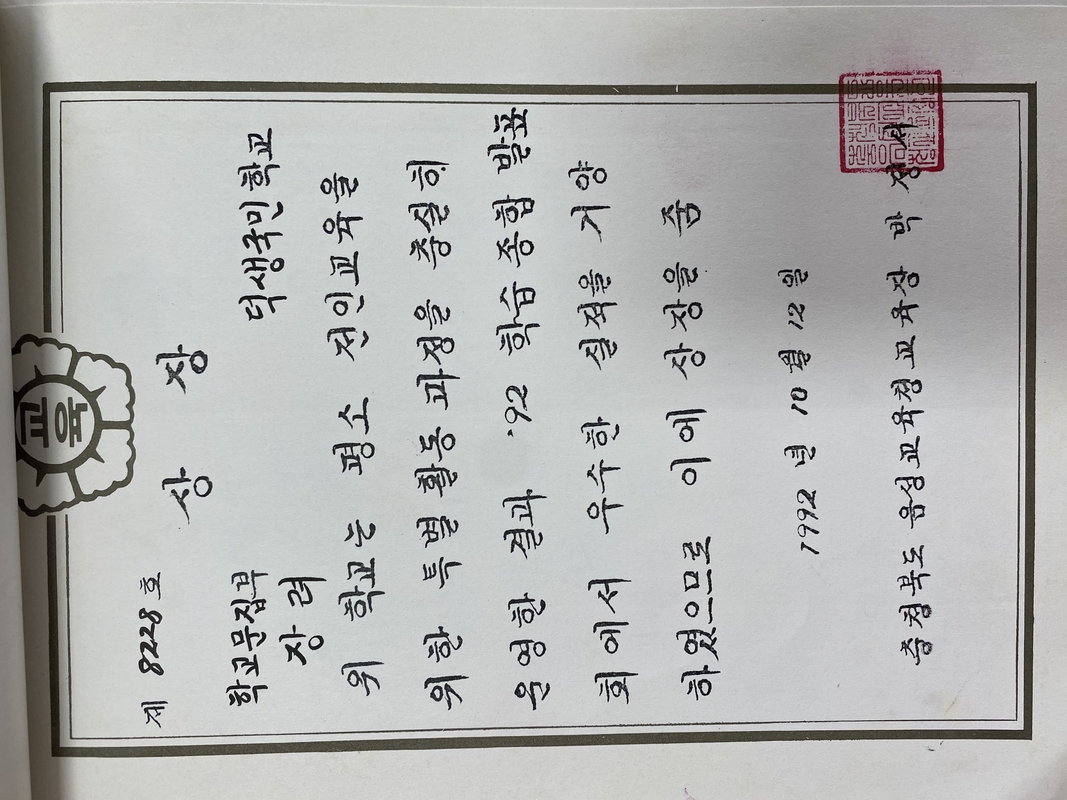 교육
제 8228 호
상 장
학교문집부
장려
덕생국민학교
위 학교는 평소 전인교육을
위한 특별활동 과정을 충실히
운영한 결과 '92 학습 종합 발표
회에서 우수한 실적을 거양
하였으므로 이에 상장을 줌
1992 년 10 월 12 일
충청북도 음성교육청교육장 박